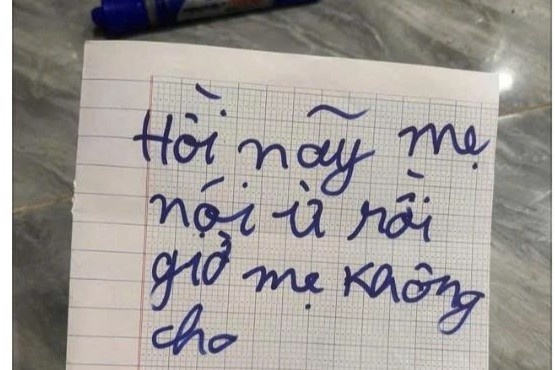 Hồi nãy mẹ
nói ừ rồi
giở mẹ không
cho